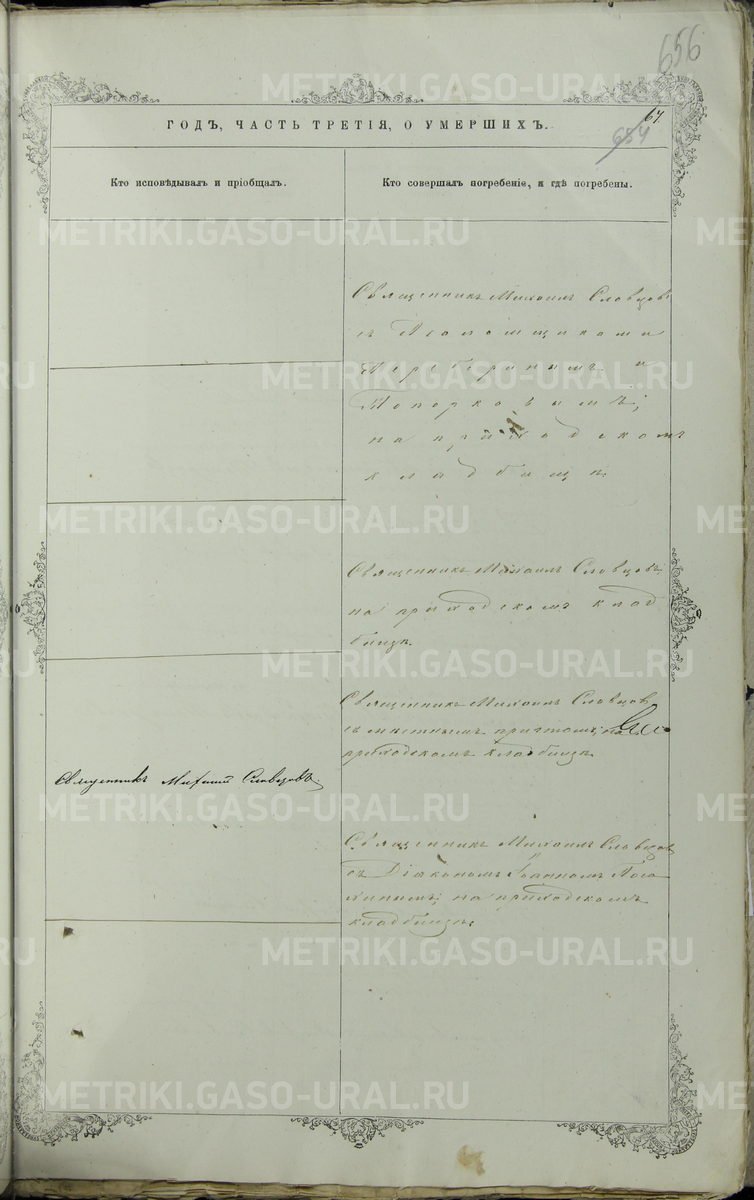 656
67
654
ГОДЪ, ЧАСТЬ ТРЕТІЯ, О УМЕРШИХЪ.
Кто исповѣдывалъ и пріобщалъ.
Кто совершалъ погребеніе, и гдѣ погребены.
Священникъ Михаилъ Словцовъ
съ Псаломщиками
и
Топорковымъ;
на приходскомъ
кладбищѣ.
Священникъ Михаилъ Словцовъ,
на приходскомъ клад
бищѣ.
Священникъ Михаилъ Словцовъ
съ мѣстнымъ причтомъ; на
приходскомъ кладбищѣ.
Священникъ Михаилъ Словцовъ.
Священникъ Михаилъ Словцов
съ Діакономъ Іоанномъ
на приходскомъ
кладбищѣ.
METRIKI.GASO-URAL.RU